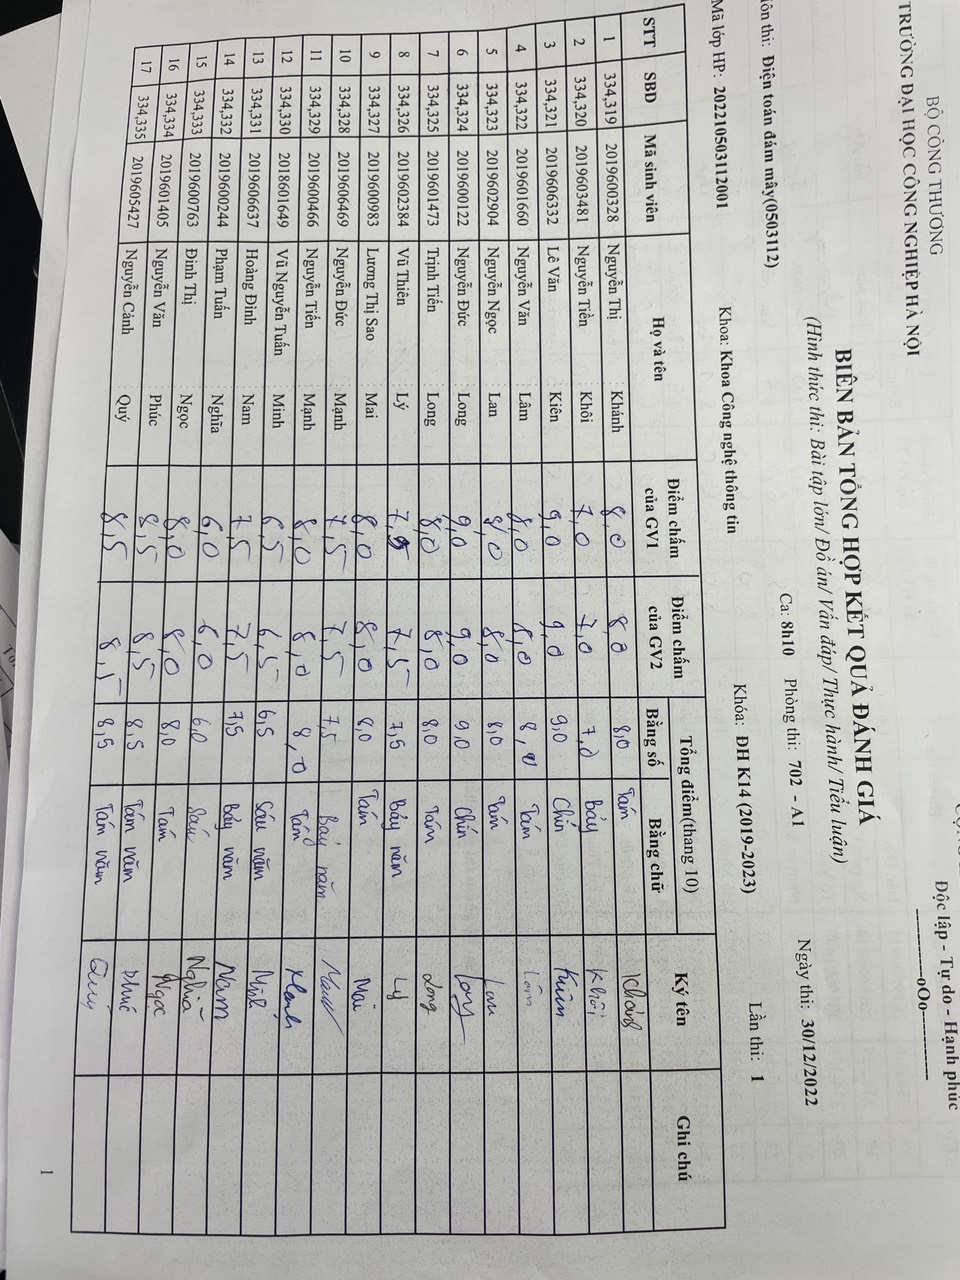 BỘ CÔNG THƯƠNG
TRƯỜNG ĐẠI HỌC CÔNG NGHIỆP HÀ NỘI
Độc lập - Tự do - Hạnh phúc
-----------oOo-----------
BIÊN BẢN TỔNG HỢP KẾT QUẢ ĐÁNH GIÁ
(Hình thức thi: Bài tập lớn/ Đồ án/ Vấn đáp/ Thực hành/ Tiểu luận)
thi: Điện toán đám mây(0503112) Ca: 8h10 Phòng thi: 702 - A1 Ngày thi: 30/12/2022
Mã lớp HP: 202210503112001 Khoa: Khoa Công nghệ thông tin Khóa: ĐH K14 (2019-2023) Lần thi: 1
STT SBD Mã sinh viên Họ và tên Điểm chấm của GV1 Điểm chấm của GV2 Tổng điểm(thang 10) Ký tên Ghi chú
Bằng số Bằng chữ
1 334,319 2019600328 Nguyễn Thị Khánh 8,0 8,0 8,0 Tám Khánh
2 334,320 2019603481 Nguyễn Tiền Khôi 7,0 7,0 7,0 Bảy Khôi
3 334,321 2019606332 Lê Văn Kiên 9,0 9,0 9,0 Chín Kiên
4 334,322 2019601660 Nguyễn Văn Lâm 8,0 8,0 8,0 Tám Lâm
5 334,323 2019602904 Nguyễn Ngọc Lan 8,0 8,0 8,0 Tám Lan
6 334,324 2019600122 Nguyễn Đức Long 9,0 9,0 9,0 Chín Long
7 334,325 2019601473 Trịnh Tiến Long 8,0 8,0 8,0 Tám Long
8 334,326 2019602384 Vũ Thiên Lý 7,5 7,5 7,5 Bảy năm Lý
9 334,327 2019600983 Lương Thị Sao Mai 8,0 8,0 8,0 Tám Mai
10 334,328 2019606469 Nguyễn Đức Mạnh 7,5 7,5 7,5 Bảy năm
11 334,329 2019600466 Nguyễn Tiến Mạnh 8,0 8,0 8,0 Tám Mạnh
12 334,330 2018601649 Vũ Nguyễn Tuấn Minh 6,5 6,5 6,5 Sáu năm Minh
13 334,331 2019606637 Hoàng Đình Nam 7,5 7,5 7,5 Bảy năm Nam
14 334,332 2019600244 Phạm Tuấn Nghĩa 6,0 6,0 6,0 Sáu Nghĩa
15 334,333 2019600763 Đinh Thị Ngọc 8,0 8,0 8,0 Tám Ngọc
16 334,334 2019601405 Nguyễn Văn Phúc 8,5 8,5 8,5 Tám năm Phúc
17 334,335 2019605427 Nguyễn Cảnh Quý 8,5 8,5 8,5 Tám năm Quý
1